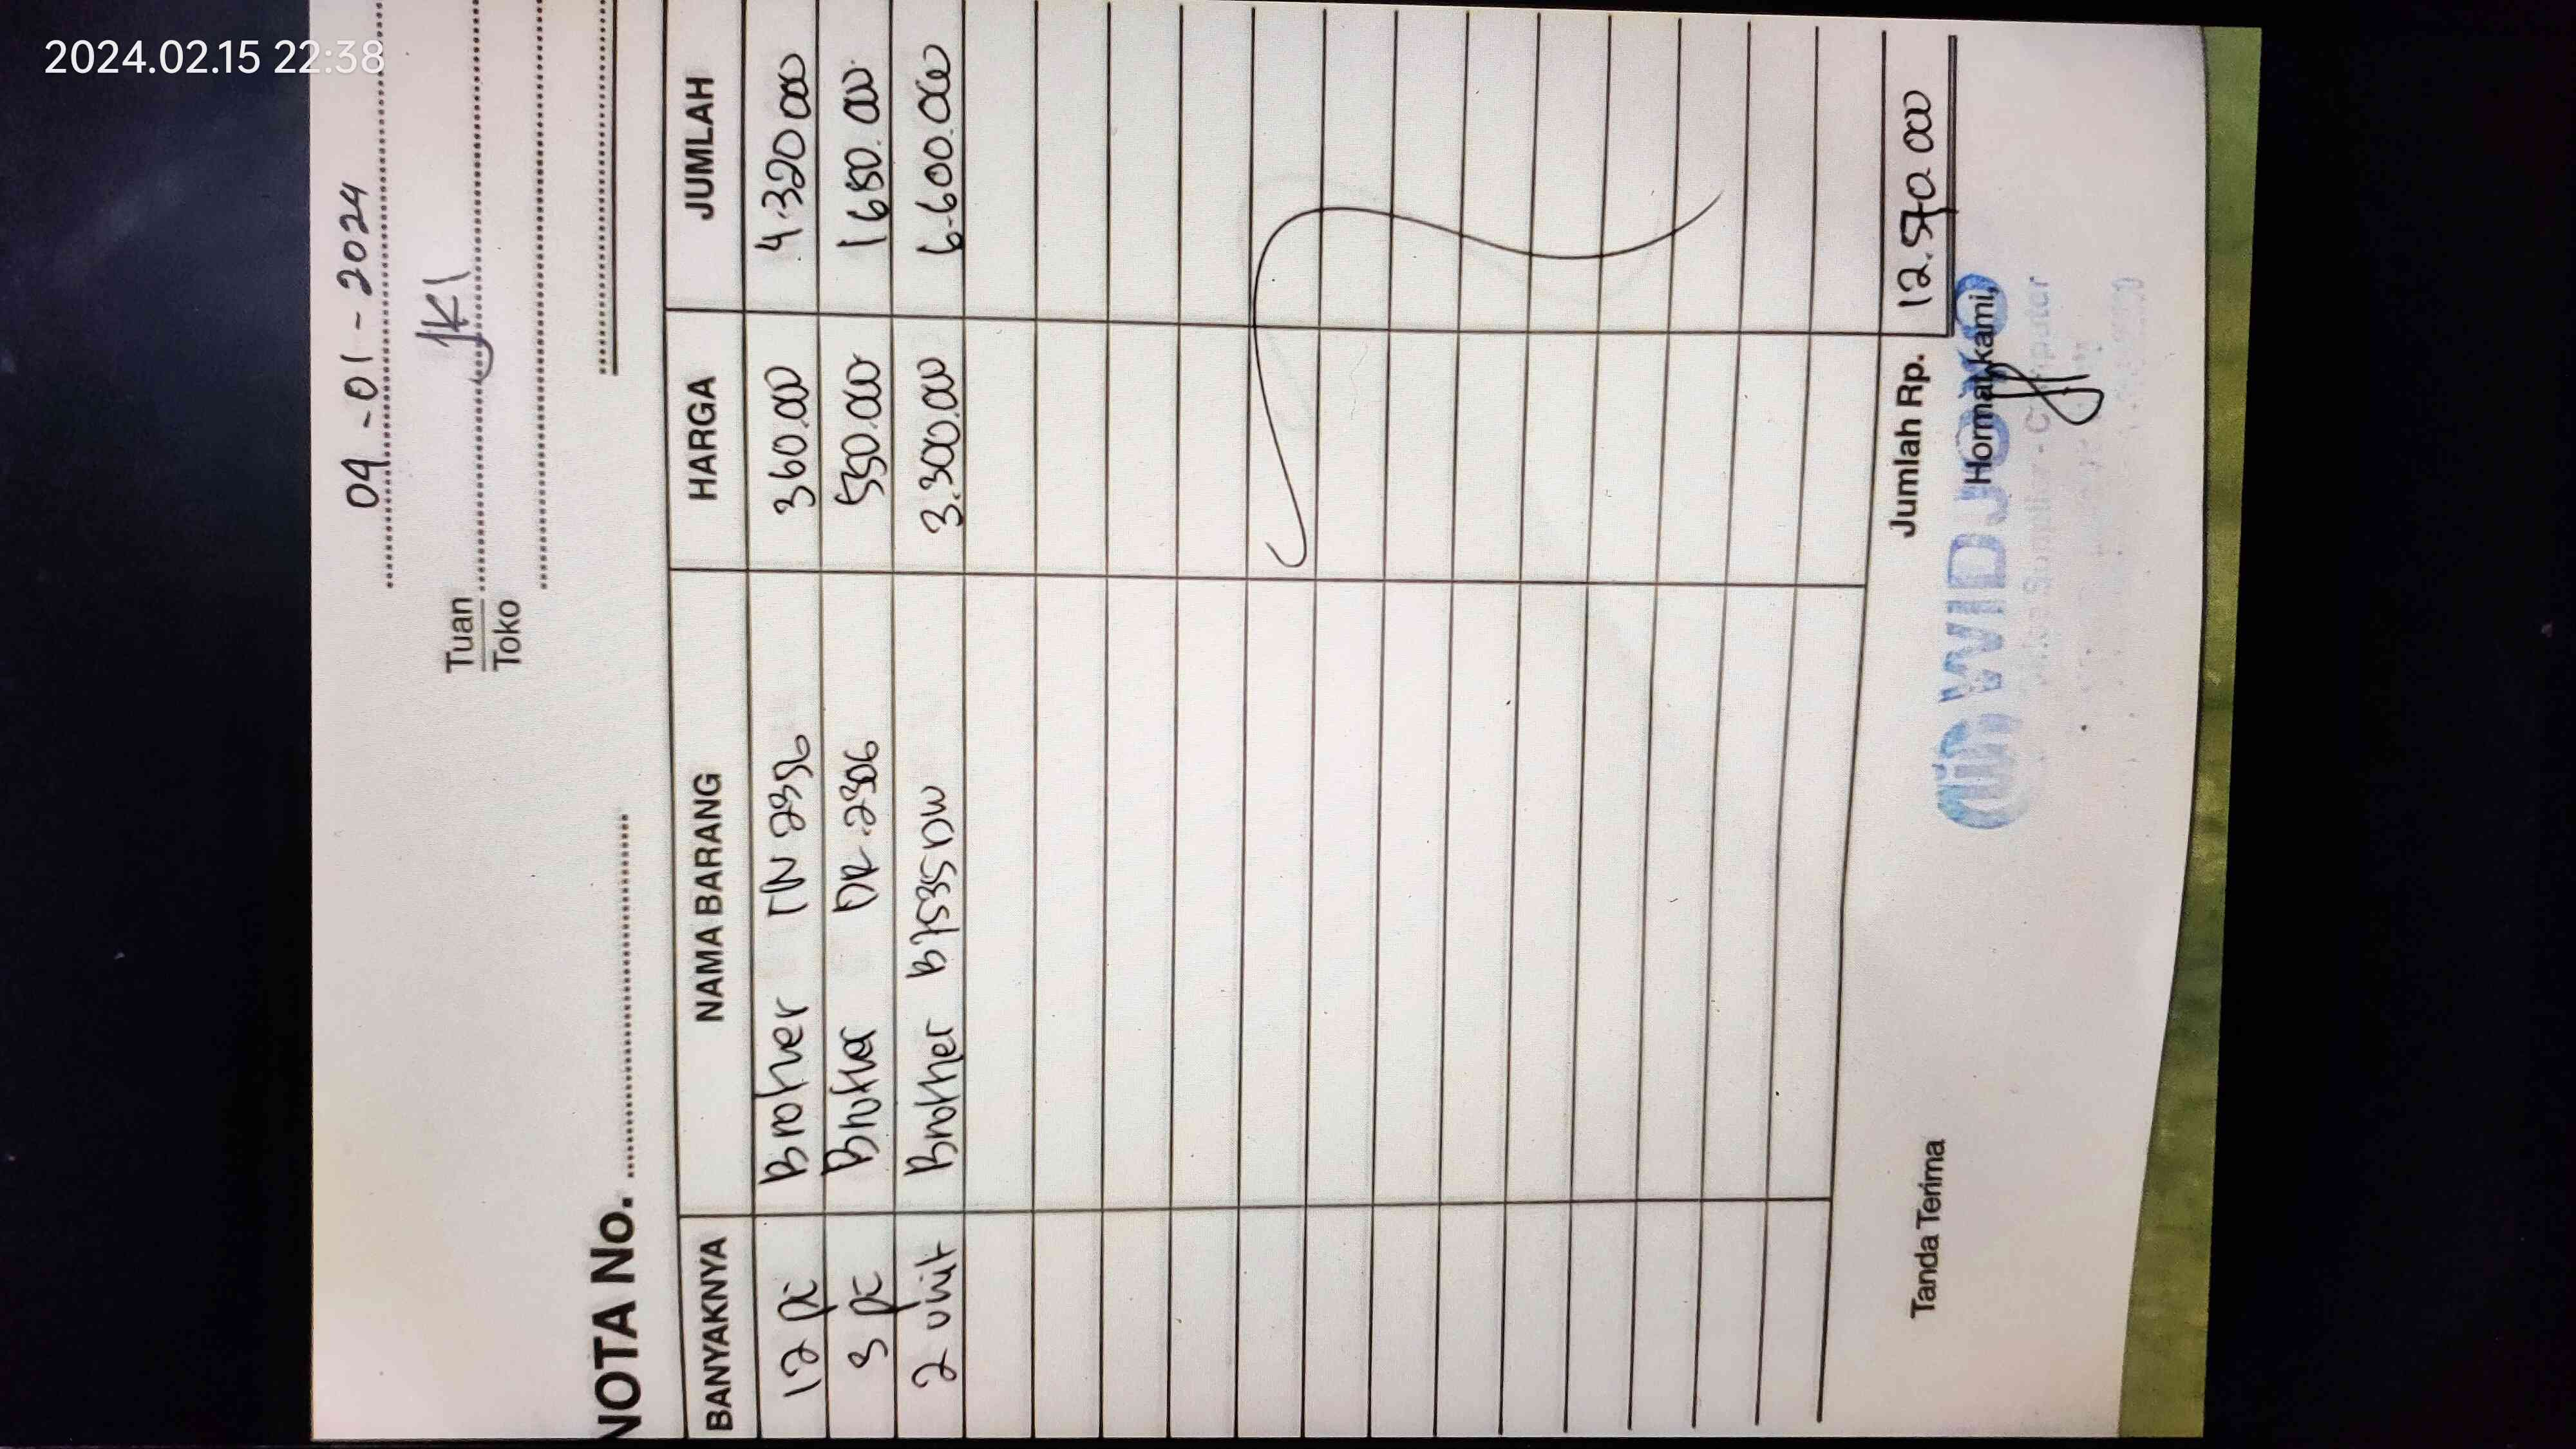 2024.02.15 22:38
04-01-2024
Tuan JKI
Toko
NOTA No.
BANYAKNYA NAMA BARANG HARGA JUMLAH
12 pc Broher TN 2356 360.000 4.320 000
3 pc Brother DR.2306 550.000 1 650.000
2 unit Brother B7535DW 3.300.000 6.600.000
Jumlah Rp. 12.570 000
Tanda Terima Hormat kami,
WIDJOYO